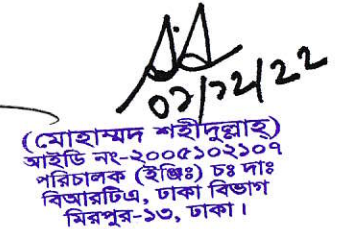 ০১/১২/২২
(মোহাম্মদ শহীদুল্লাহ্)
আইডি নং-২০০৫১০২১০৭
পরিচালক (ইঞ্জিঃ) চঃ দাঃ
বিআরটিএ, ঢাকা বিভাগ
মিরপুর-১৩, ঢাকা।